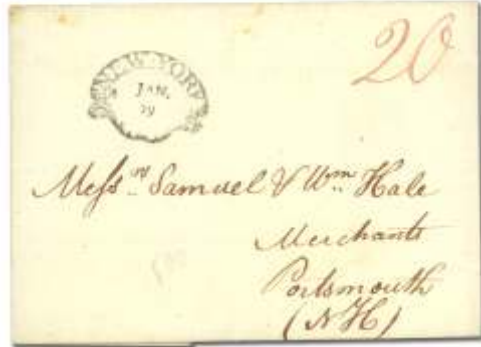 NEW-YORK
JAN.
19
20
Messrs. Samuel & Wm Hale
Merchants
Portsmouth
(NH)